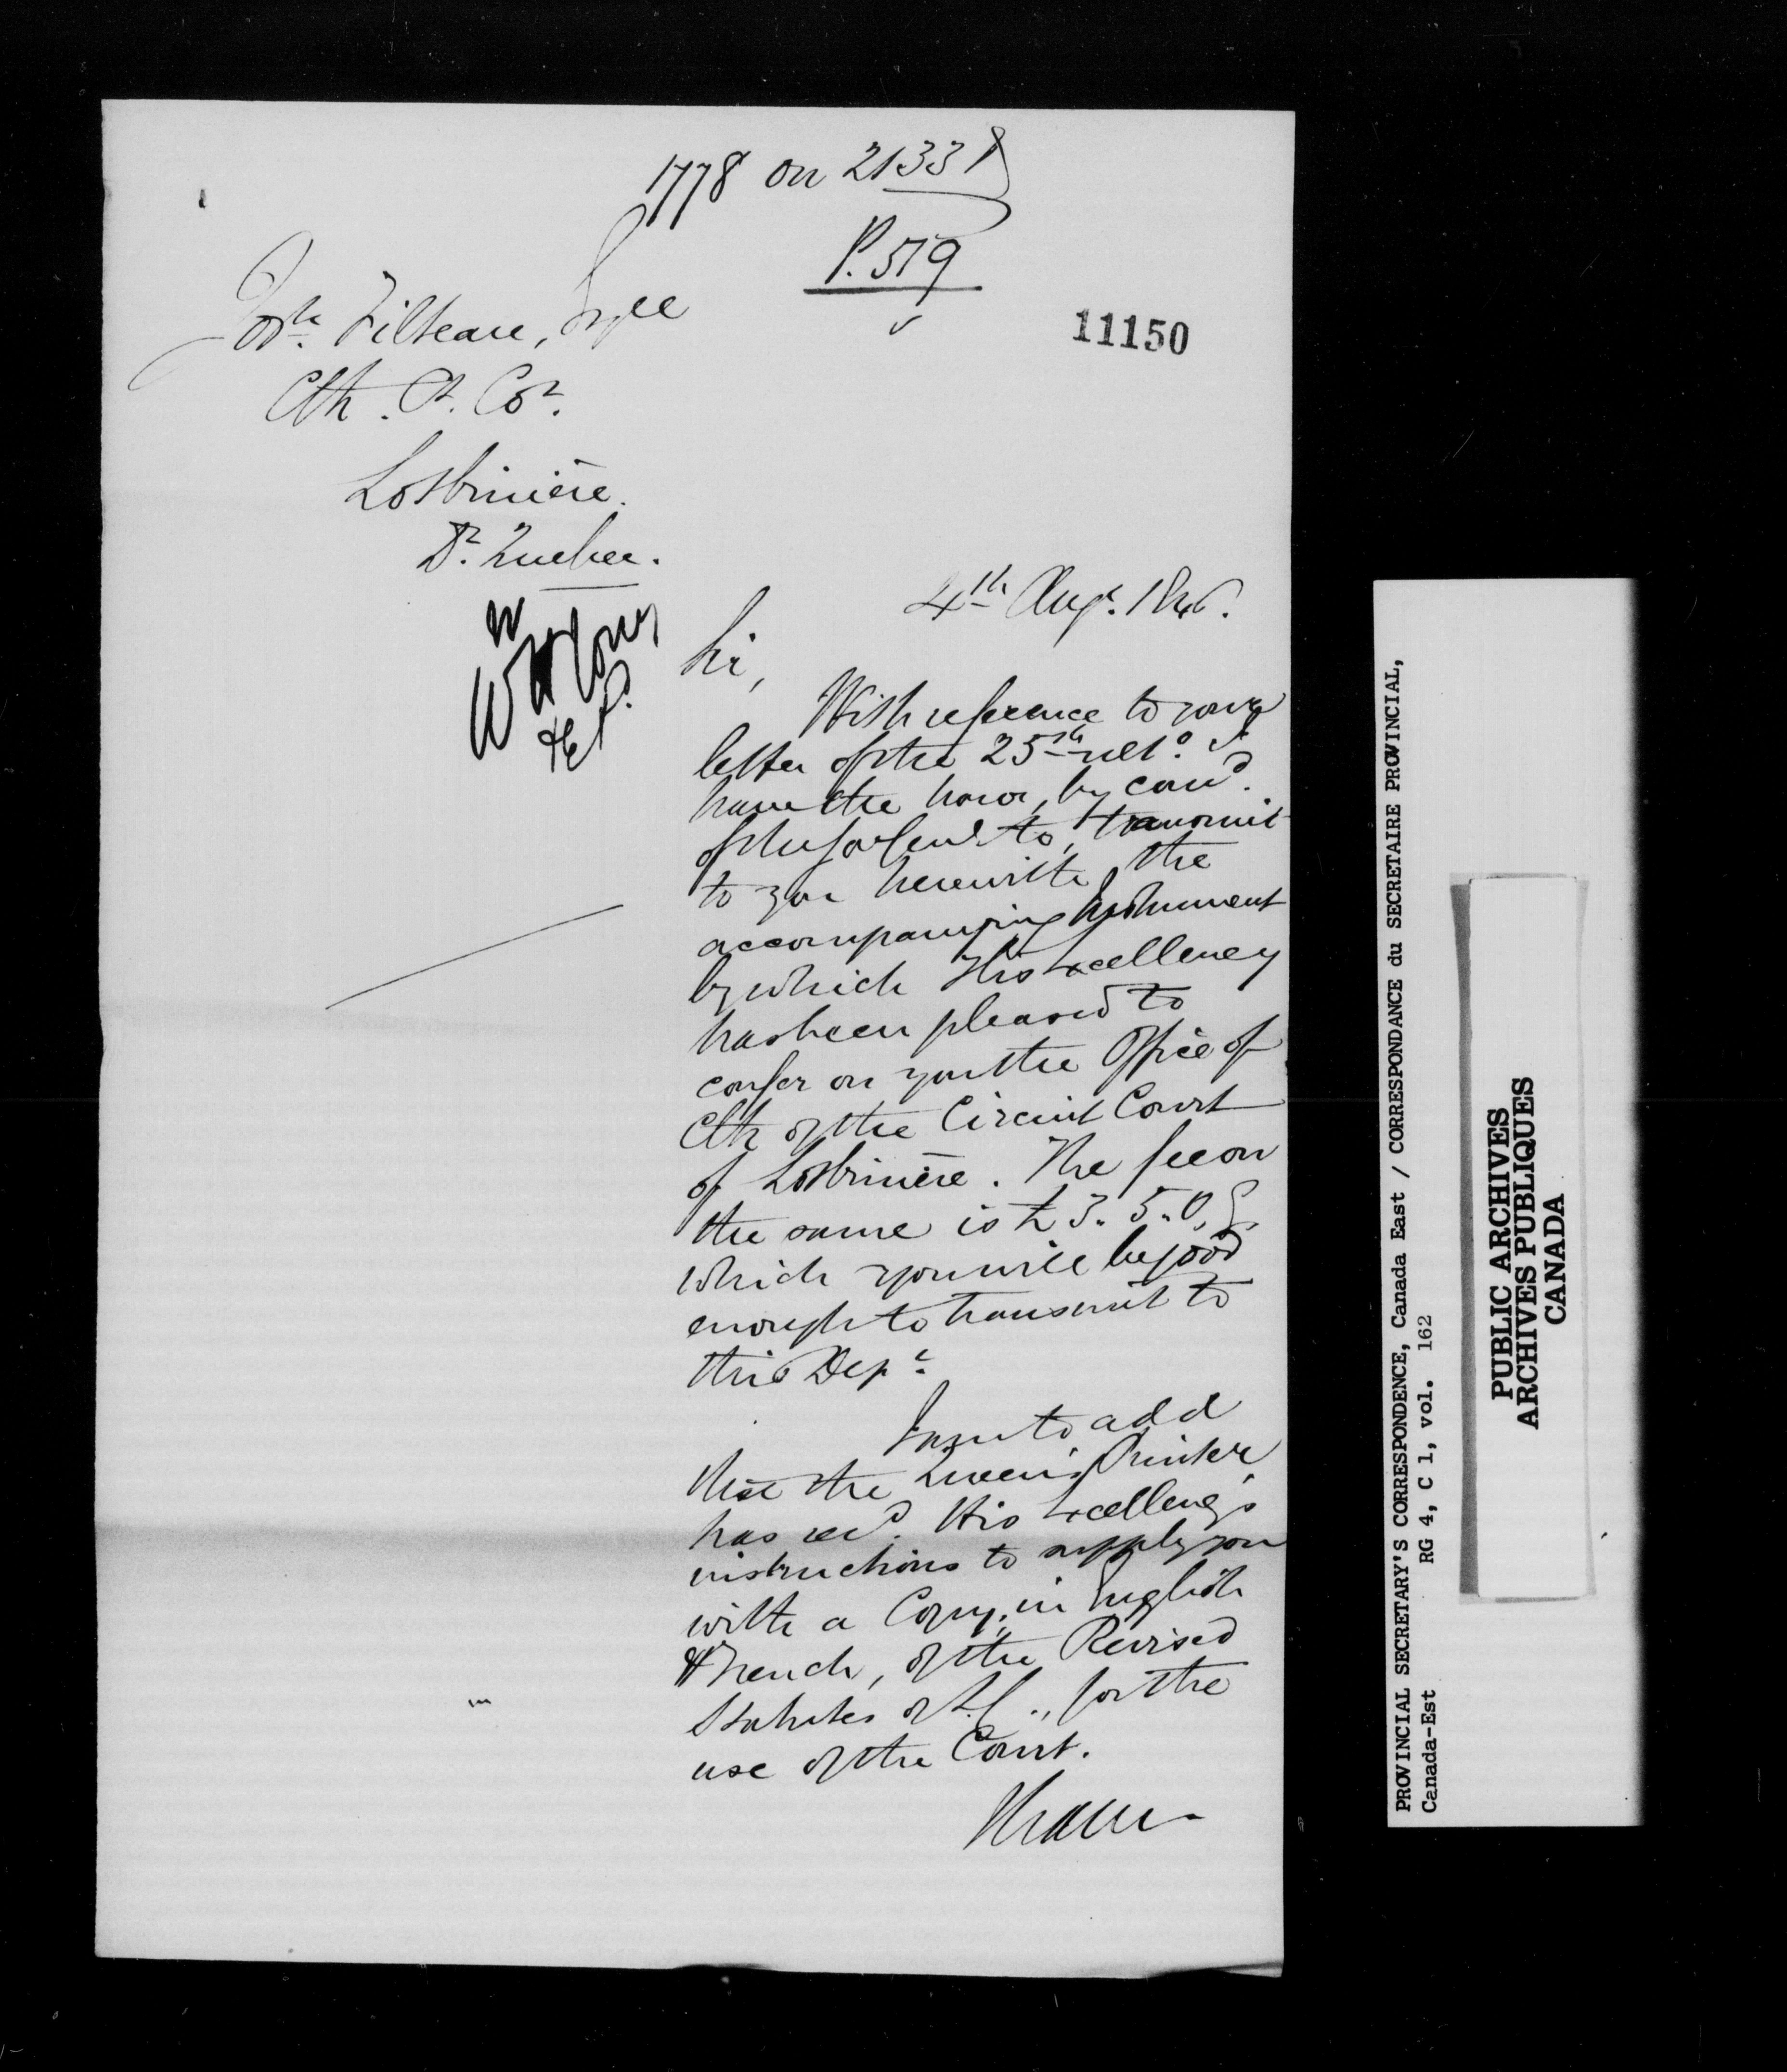 1778 on 2133
P. 519
11150
Filteau, Esqre
Clk. Ct. Cot.
Lotbinière.
Dt. Quebec.
4th Augt. 1846.
Sir,
With reference to your
letter of the 25th ulto. I
have the honor, by comd.
of the to transmit
to you herewith, the
accompanying Instrument
by which His Excellency
has been pleased to
confer on you the Office of
Clk of the Circuit Court
of Lotbinière. The fee on
the same is £3. 5. 0,
which you will be good
enough to transmit to
this Dept.
I am to add
that the Queen's Printer
has recd. His Excellency's
instructions to supply you
with a Copy, in English
& French, of the Revised
Statutes of L.C., for the
use of the Court.
I have
PROVINCIAL SECRETARY'S CORRESPONDENCE, Canada East / CORRESPONDANCE du SECRETAIRE PROVINCIAL,
Canada-Est RG 4, C 1, vol. 162
PUBLIC ARCHIVES
ARCHIVES PUBLIQUES
CANADA